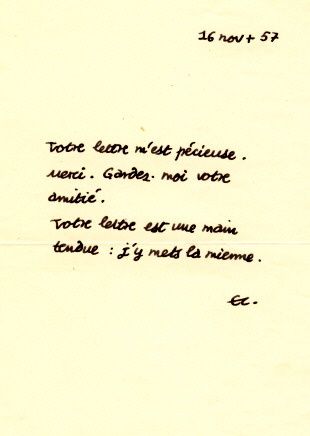 16 nov + 57
Votre lettre m'est précieuse.
Merci. Gardez-moi votre
amitié.
Votre lettre est une main
tendue : j'y mets la mienne.